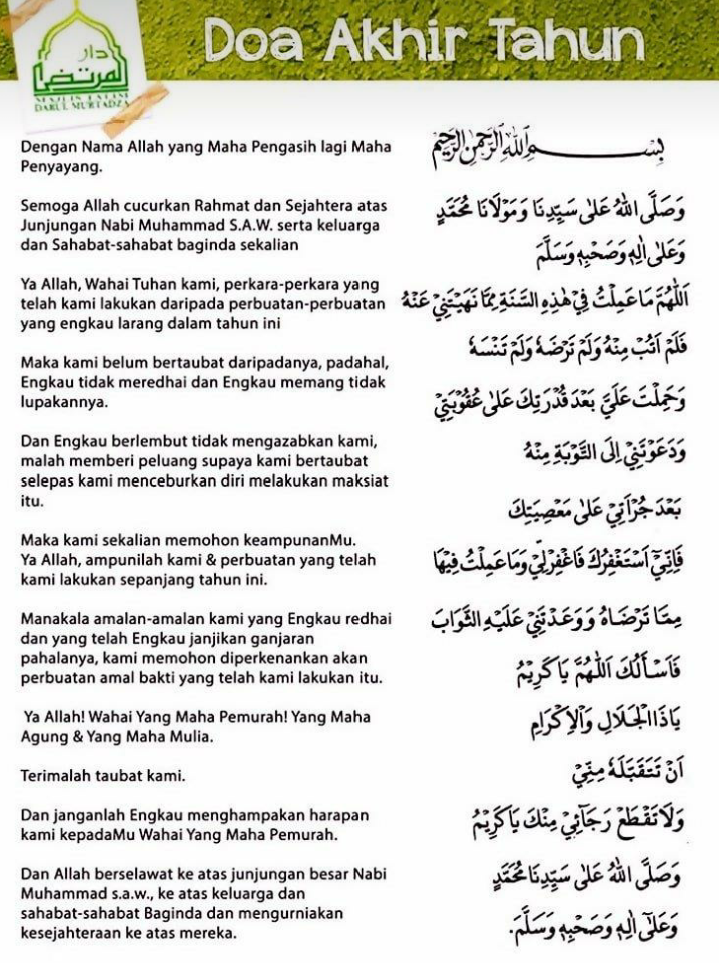 دار
المرتضى
MAJLIS TALIM
DARUL MURTADZA
Doa Akhir Tahun
Dengan Nama Allah yang Maha Pengasih lagi Maha
Penyayang.
Semoga Allah cucurkan Rahmat dan Sejahtera atas
Junjungan Nabi Muhammad S.A.W. serta keluarga
dan Sahabat-sahabat baginda sekalian
Ya Allah, Wahai Tuhan kami, perkara-perkara yang
telah kami lakukan daripada perbuatan-perbuatan
yang engkau larang dalam tahun ini
Maka kami belum bertaubat daripadanya, padahal,
Engkau tidak meredhai dan Engkau memang tidak
lupakannya.
Dan Engkau berlembut tidak mengazabkan kami,
malah memberi peluang supaya kami bertaubat
selepas kami menceburkan diri melakukan maksiat
itu.
Maka kami sekalian memohon keampunanMu.
Ya Allah, ampunilah kami & perbuatan yang telah
kami lakukan sepanjang tahun ini.
Manakala amalan-amalan kami yang Engkau redhai
dan yang telah Engkau janjikan ganjaran
pahalanya, kami memohon diperkenankan akan
perbuatan amal bakti yang telah kami lakukan itu.
Ya Allah! Wahai Yang Maha Pemurah! Yang Maha
Agung & Yang Maha Mulia.
Terimalah taubat kami.
Dan janganlah Engkau menghampakan harapan
kami kepadaMu Wahai Yang Maha Pemurah.
Dan Allah berselawat ke atas junjungan besar Nabi
Muhammad s.a.w., ke atas keluarga dan
sahabat-sahabat Baginda dan mengurniakan
kesejahteraan ke atas mereka.
بِسْمِ اللهِ الرَّحْمٰنِ الرَّحِيْمِ
وَصَلَّى اللهُ عَلٰى سَيِّدِنَا وَمَوْلَانَا مُحَمَّدٍ
وَعَلٰى اٰلِهٖ وَصَحْبِهٖ وَسَلَّمَ
اَللّٰهُمَّ مَا عَمِلْتُ فِيْ هٰذِهِ السَّنَةِ مِمَّا نَهَيْتَنِيْ عَنْهُ
فَلَمْ اَتُبْ مِنْهُ وَلَمْ تَرْضَهُ وَلَمْ تَنْسَهُ
وَحَمِلْتَ عَلَيَّ بَعْدَ قُدْرَتِكَ عَلٰى عُقُوْبَتِيْ
وَدَعَوْتَنِيْ اِلَى التَّوْبَةِ مِنْهُ
بَعْدَ جُرْاَتِيْ عَلٰى مَعْصِيَتِكَ
فَاِنِّيْٓ اَسْتَغْفِرُكَ فَاغْفِرْلِيْ وَمَا عَمِلْتُ فِيْهَا
مِمَّا تَرْضَاهُ وَوَعَدْتَنِيْ عَلَيْهِ الثَّوَابَ
فَاَسْأَلُكَ اَللّٰهُمَّ يَا كَرِيْمُ
يَاذَا الْجَلَالِ وَالْاِكْرَامِ
اَنْ تَتَقَبَّلَهُ مِنِّيْ
وَلَا تَقْطَعْ رَجَآئِيْ مِنْكَ يَاكَرِيْمُ
وَصَلَّى اللهُ عَلٰى سَيِّدِنَا مُحَمَّدٍ
وَعَلٰٓى اٰلِهٖ وَصَحْبِهٖ وَسَلَّمَ.